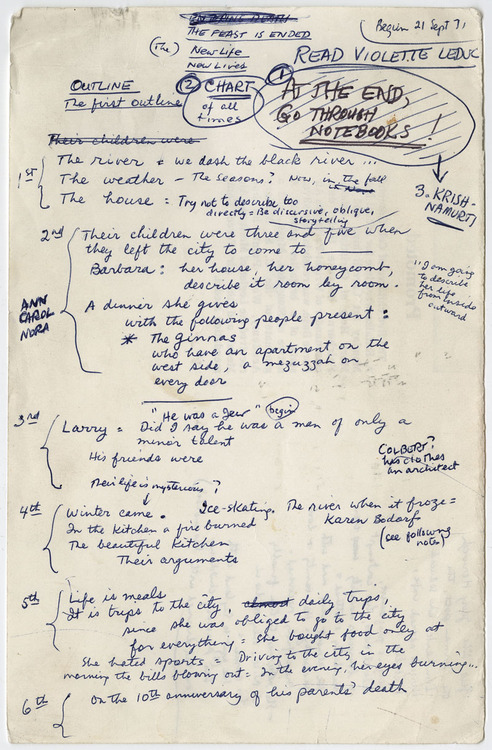 THE FEAST IS ENDED
(The) New Life
New Lives
(Begin 21 Sept 71
READ VIOLETTE LEDUC
OUTLINE
The first outline
② CHART
of all
times
①
AT THE END,
GO THROUGH
NOTEBOOKS!
3. KRISH-
NAMURTI
Their children were
1st
The river = we dash the black river ...
The weather - The seasons? Now, in the fall
The house = Try not to describe too
directly = Be discursive, oblique,
storytelling
2nd
Their children were three and five when
they left the city to come to ______
Barbara: her house, her honeycomb,
describe it room by room.
"I am going
to describe
her life
from inside
outward
ANN
CAROL
NORA
A dinner she gives
with the following people present:
* The Ginnas
who have an apartment on the
west side, a mezuzzah on
every door
3rd
"He was a Jew" begin
Larry = Did I say he was a man of only a
minor talent
His friends were
COLBERT?
his clothes
an architect
Their life is mysterious?
4th
Winter came. Ice-skating. The river when it froze =
In the Kitchen a fire burned
Karen Bodorf
The beautiful Kitchen
(see following
notes)
Their arguments
5th
Life is meals
It is trips to the city, almost daily trips,
since she was obliged to go to the city
for everything = she bought food only at
She hated sports = Driving to the city in the
morning the bills blowing out = In the evening, her eyes burning...
6th
On the 10th anniversary of his parents' death